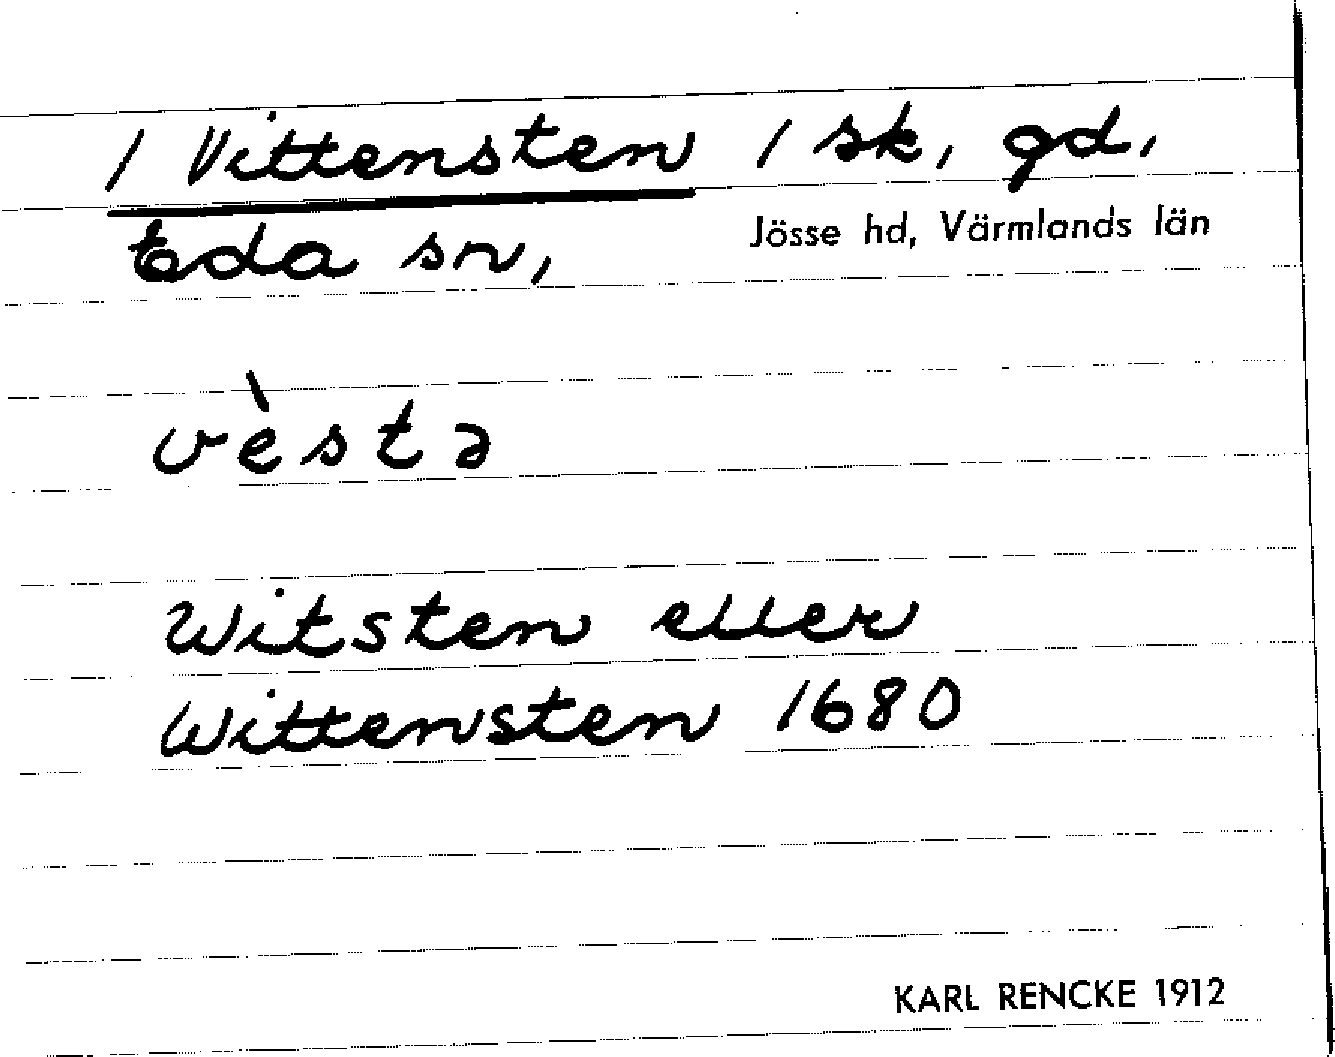 / Vittensten / sk, gd,
Eda sn, Jösse hd, Värmlands län
vèstə
Witsten eller
Wittensten 1680
KARL RENCKE 1912